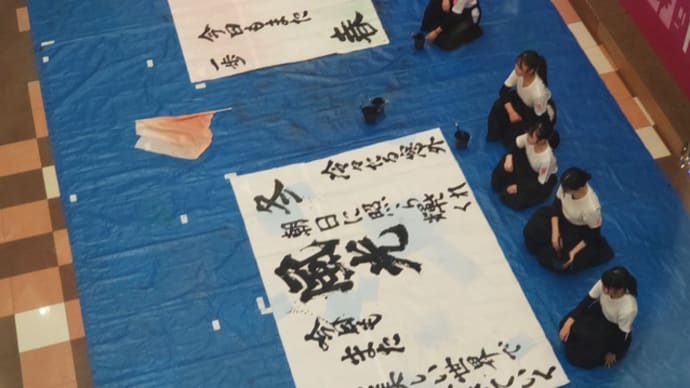 今日もまた
一歩
春
冬
冷々たる
朝日に照ら
風光
今日も
また
美しい世界で